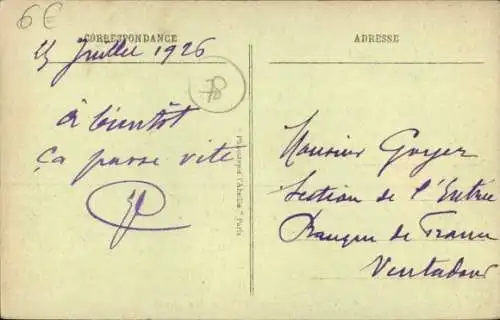 6€
CORRESPONDANCE
15 Juillet 1926
78
à bientôt
ça passe vite
ADRESSE
Monsieur Goyer
Section de l'Entrée
Banque de France
Ventadour
Phototypie "l'Abeille" Paris